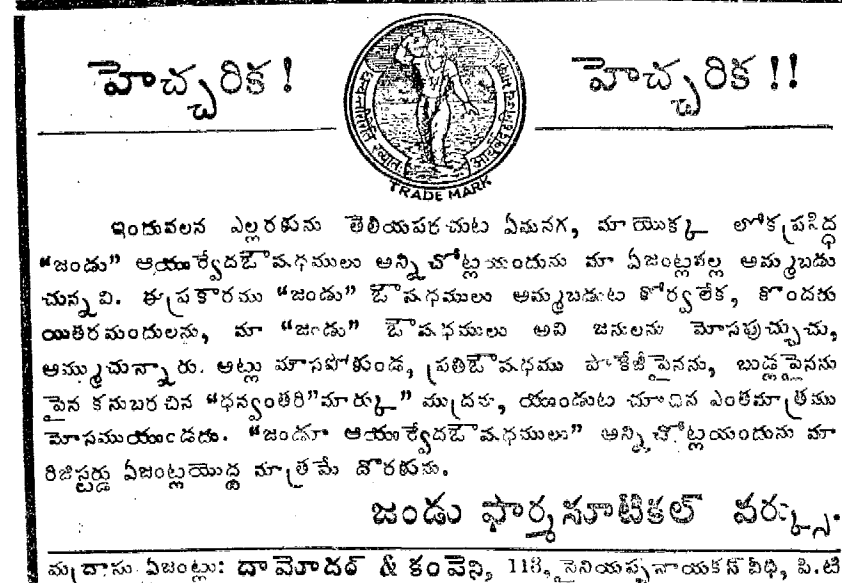 హెచ్చరిక! హెచ్చరిక!!
TRADE MARK
ఇందువలన ఎల్లరకును తెలియపరచుట ఏమనగ, మా యొక్క లోకప్రసిద్ధ
“జండు” ఆయుర్వేదఔషధములు అన్ని చోట్లయందును మా ఏజంట్లవల్ల అమ్మబడు
చున్నవి. ఈప్రకారము “జండు” ఔషధములు అమ్మబడుట కోర్వలేక, కొందరు
యితరమందులను, మా “జండు” ఔషధములు అవి జనులను మోసపుచ్చుచు,
అమ్ముచున్నారు. అట్లు మోసపోకుండ, ప్రతిఔషధము పాకేజీపైనను, బుడ్లపైనను
పైన కనుబరచిన “ధన్వంతరి”మార్కు” ముద్రను, యుండుట చూచిన ఎంతమాత్రము
మోసముయుండదు. “జండూ ఆయుర్వేదఔషధములు” అన్నిచోట్లయందును మా
రిజిస్టర్డు ఏజంట్లయొద్ద మాత్రమే దొరకును.
జండు ఫార్మసూటికల్ వర్క్సు.
మద్రాసు ఏజంట్లు: దామోదర్ & కంపెని, 118, నైనియప్పనాయకన్ వీధి, పి.టి